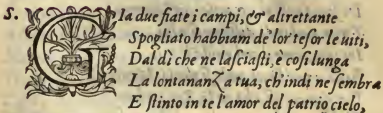 S. GIa due fiate i campi, & altrettante
Spogliato habbiam de' lor tesor le uiti,
Dal dì che ne lasciasti, è cosi lunga
La lontananza tua, ch'indi ne sembra
Estinto in te l'amor del patrio cielo,